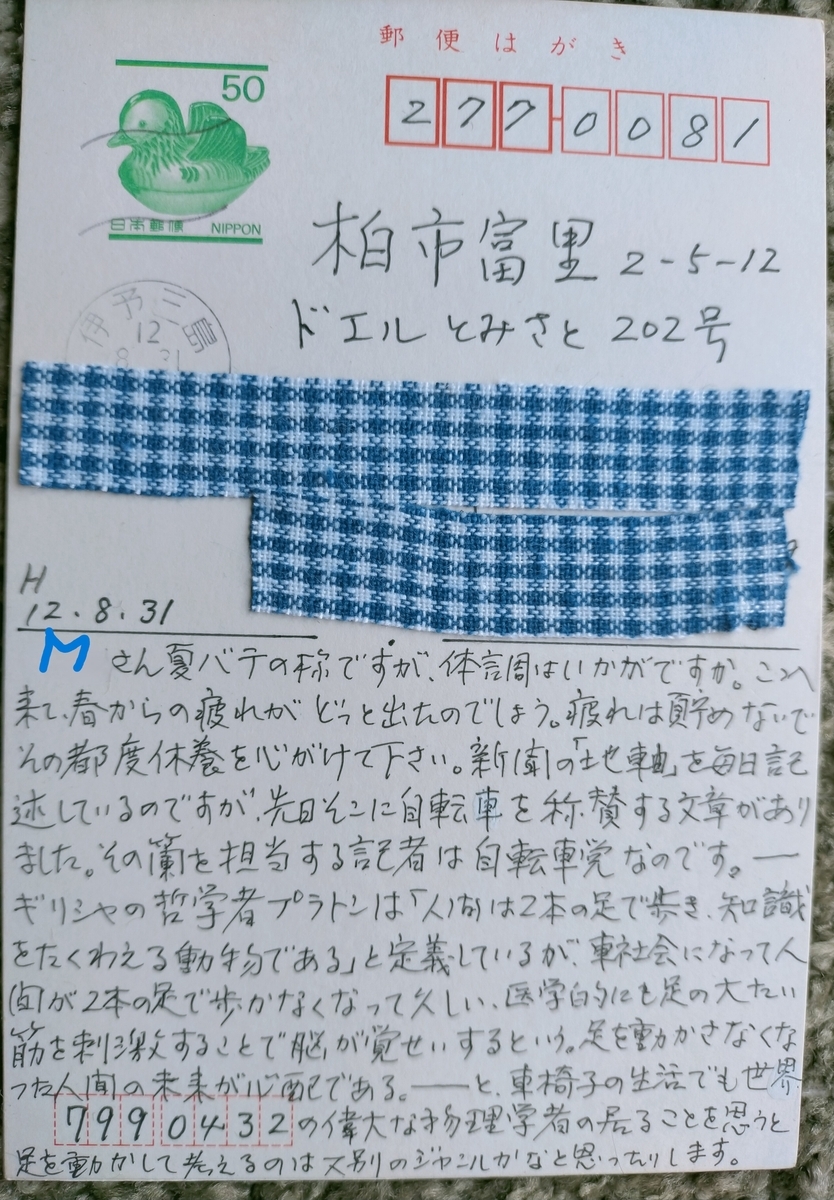 郵便はがき
50
日本郵便 NIPPON
277-0081
柏市富里 2-5-12
ドエルとみさと 202号
伊予三島
12
8 31
H
12.8.31
M さん夏バテの称ですが、体調はいかがですか。ここへ
来て、春からの疲れがどっと出たのでしょう。疲れは貯めないで
その都度休養を心がけて下さい。新聞の「地軸」を毎日記
述しているのですが、先日そこに自転車を称賛する文章があり
ました。その欄を担当する記者は自転車党なのです。―
ギリシャの哲学者プラトンは「人間は2本の足で歩き、知識
をたくわえる動物である」と定義しているが、車社会になって人
間が2本の足で歩かなくなって久しい、医学的にも足の大たい
筋を刺激することで脳が覚せいするという。足を動かさなくな
った人間の未来が心配である。――と、車椅子の生活でも世界
7990432の偉大な物理学者の居ることを思うと
足を動かして考えるのは又別のジャンルかなと思ったりします。